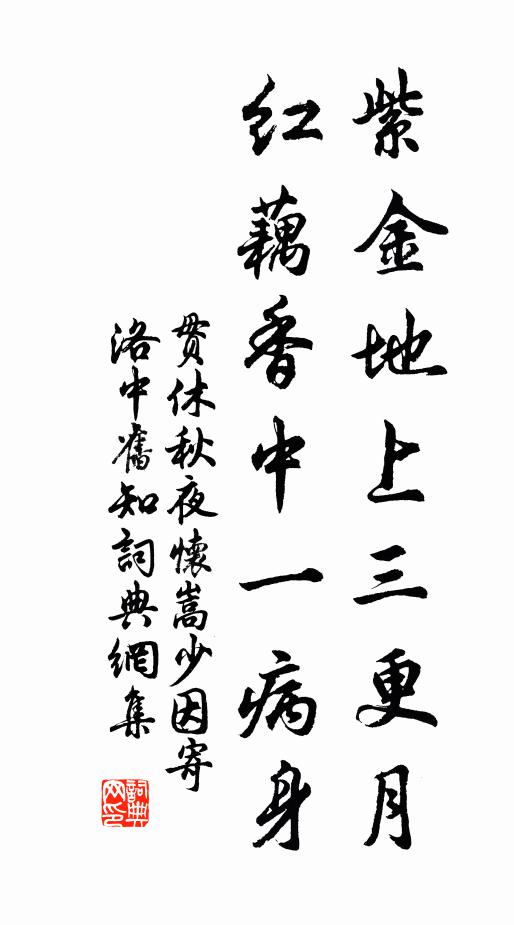 紫金地上三更月
紅藕香中一病身
貫休秋夜懷嵩少因寄
洛中舊知詞典網集
詞典
网印